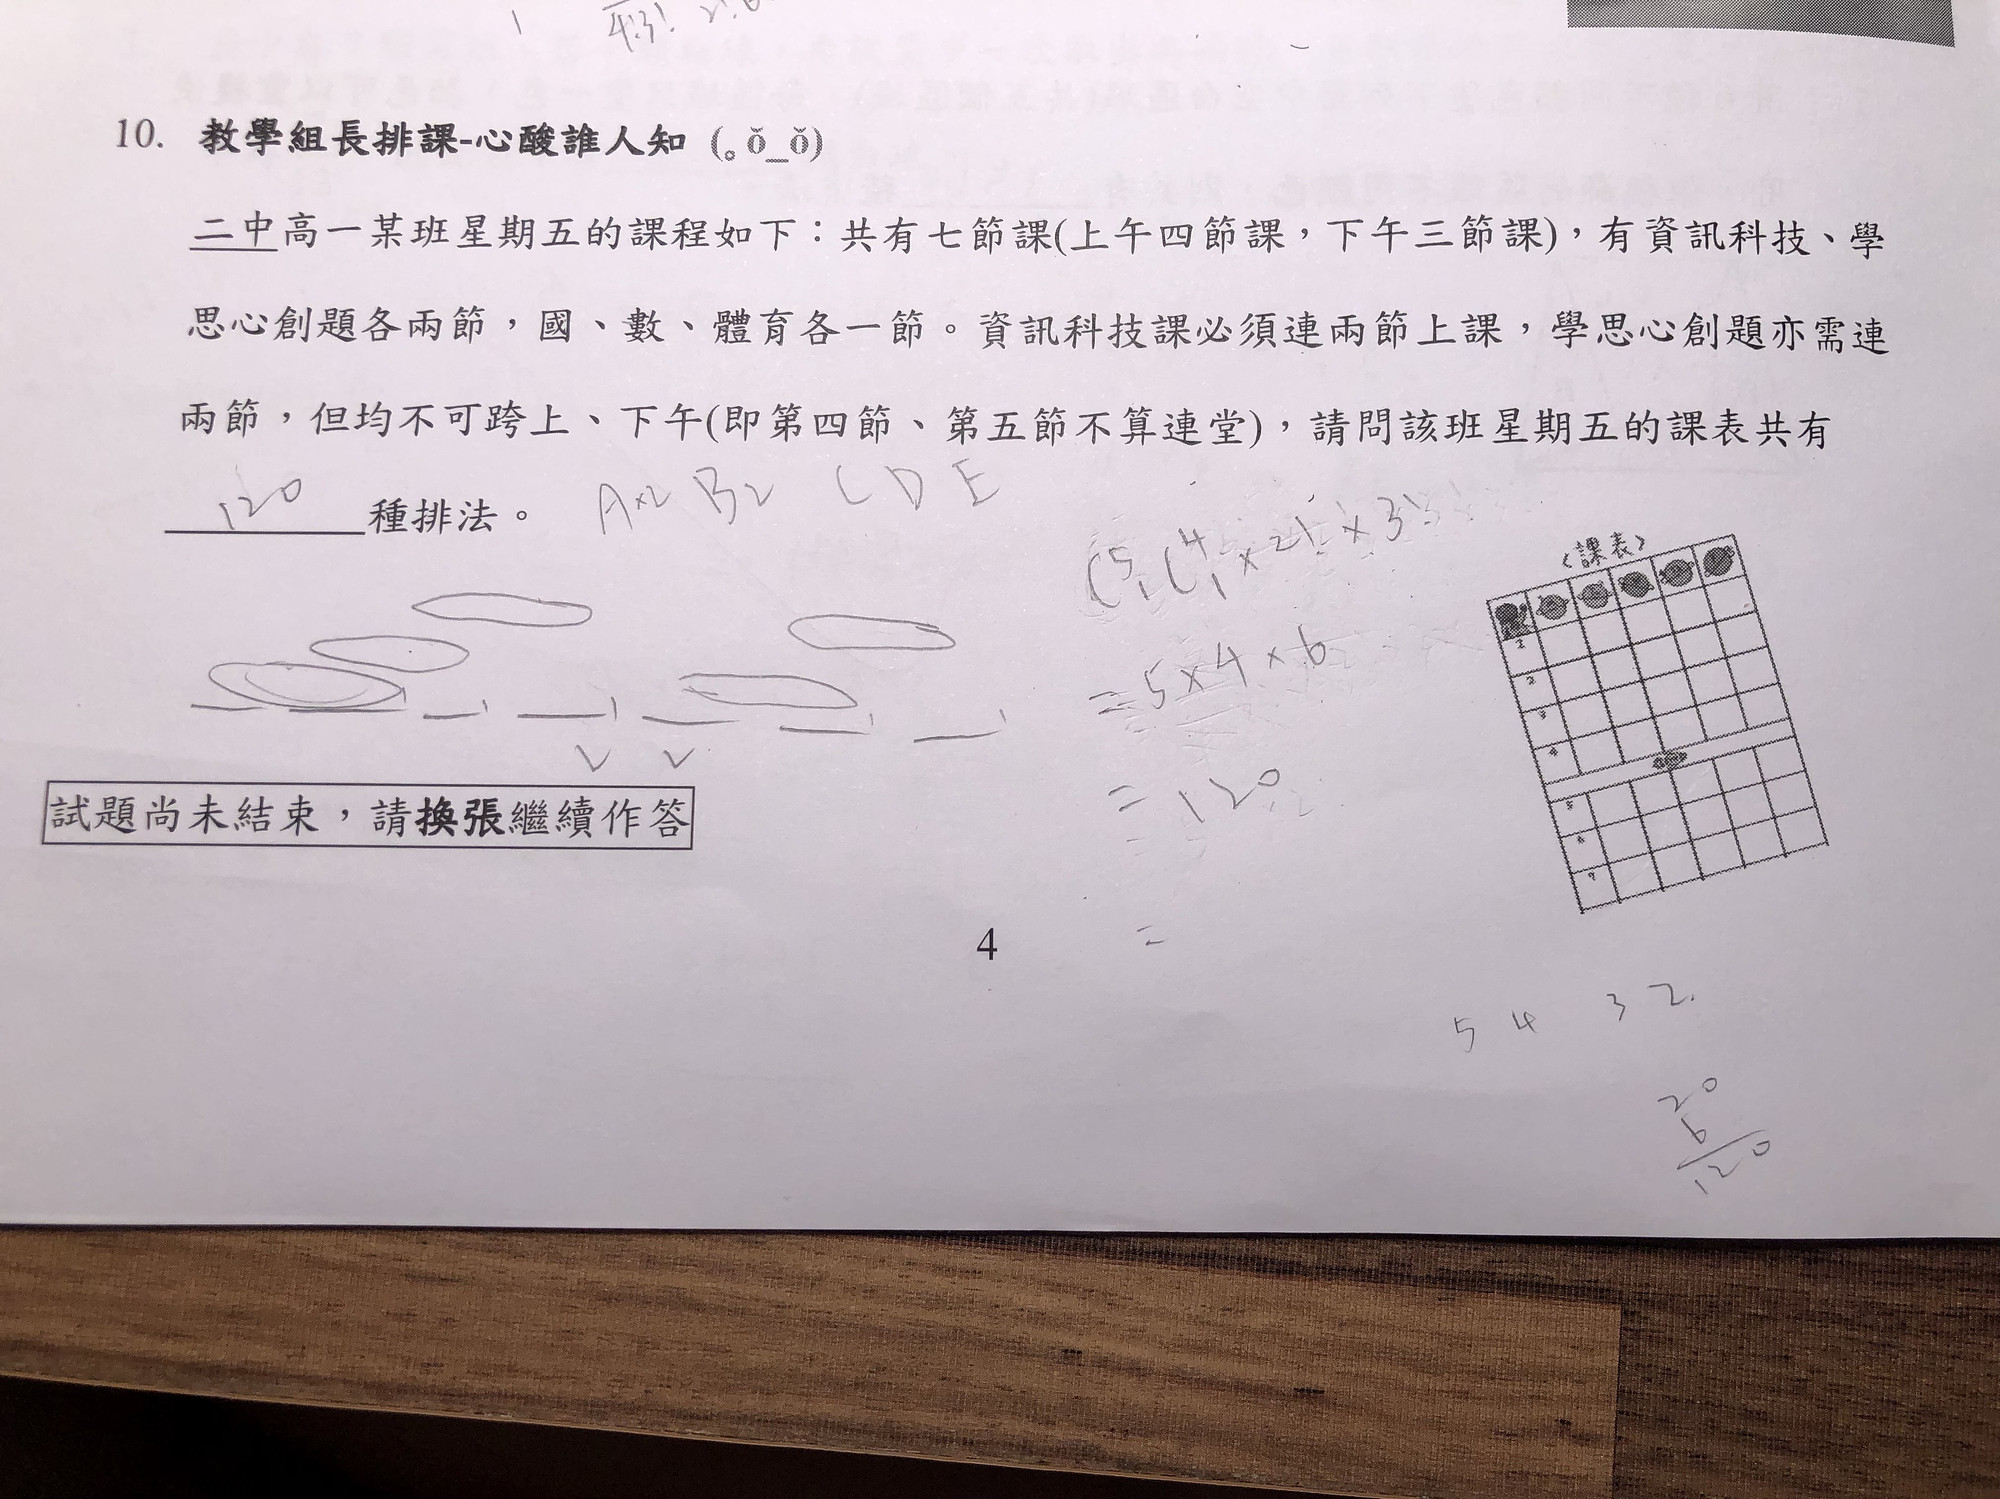 10. 教學組長排課-心酸誰人知 (｡ŏ_ŏ)
二中高一某班星期五的課程如下：共有七節課(上午四節課，下午三節課)，有資訊科技、學
思心創題各兩節，國、數、體育各一節。資訊科技課必須連兩節上課，學思心創題亦需連
兩節，但均不可跨上、下午(即第四節、第五節不算連堂)，請問該班星期五的課表共有
120 種排法。
A×2 B2 C D E
= 5×4×6
= 120
=
<課表>
1
2
3
4
5
6
7
試題尚未結束，請換張繼續作答
4
5 4 3 2
20
6
120